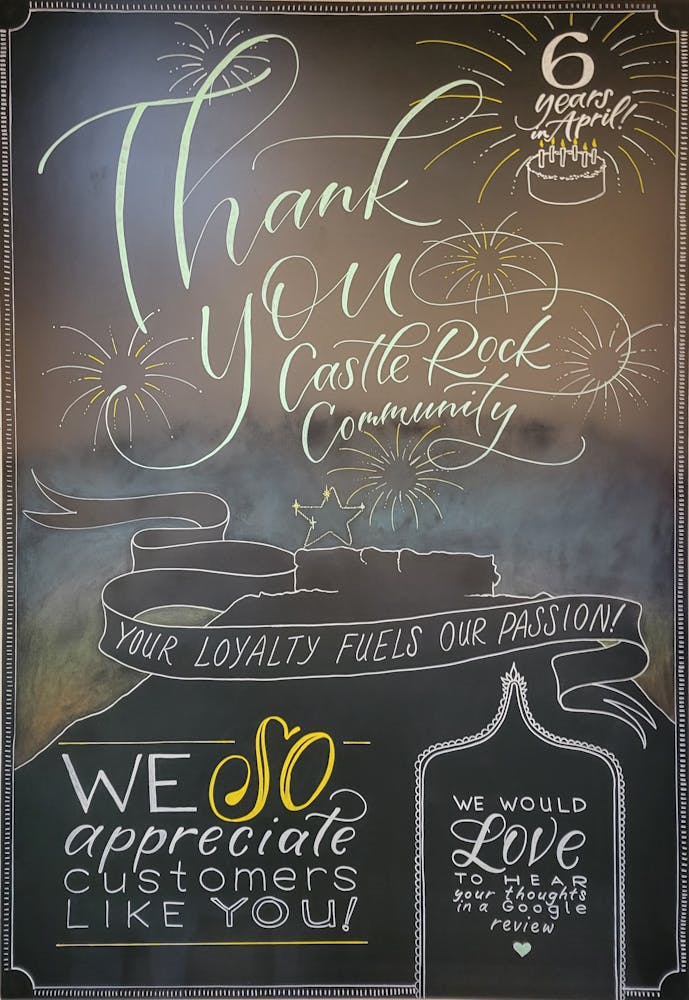 6
years
in April!
Thank
you
Castle Rock
Community
YOUR LOYALTY FUELS OUR PASSION!
WE SO
appreciate
customers
LIKE YOU!
WE WOULD
LOVE
TO HEAR
your thoughts
in a Google
review